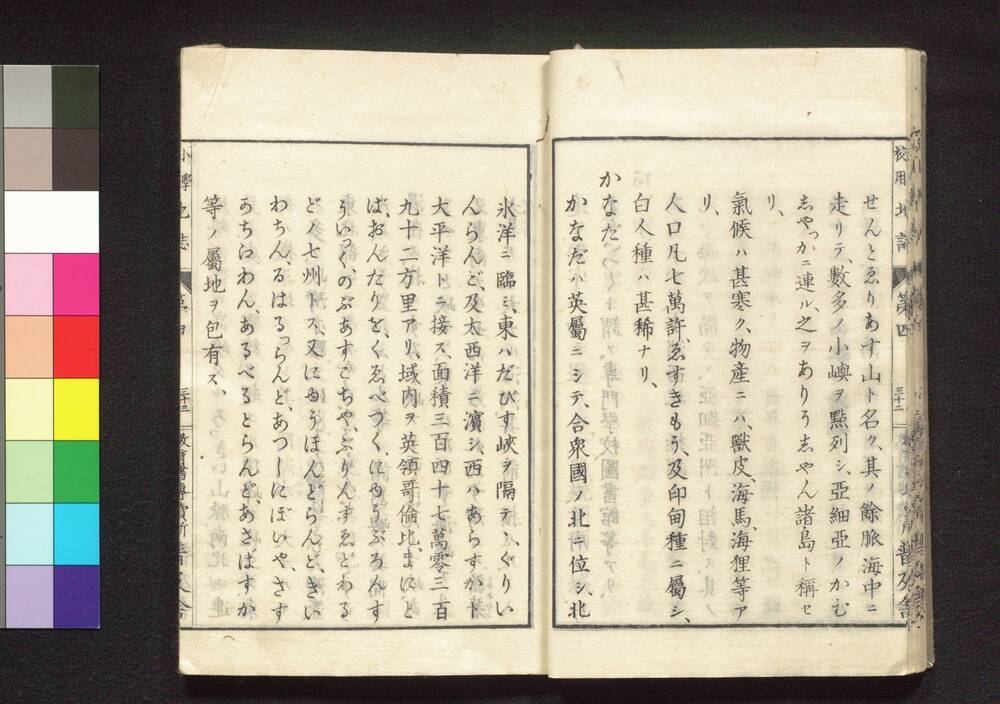 せんとゑりあす山ト名ク、其ノ餘脈海中ニ
走リテ、數多ノ小嶼ヲ點列シ、亞細亞ノかむ
志やつかニ連ル、之ヲありう志やん諸島ト稱セ
リ、
氣候ハ甚寒ク、物産ニハ、獸皮、海馬、海狸等ア
リ、
人口凡七萬許、ゑすきもう、及印甸種ニ屬シ、
白人種ハ甚稀ナリ、
かなだ
かなだハ英屬ニシテ、合衆國ノ北ニ位シ、北
氷洋ニ臨ミ、東ハだびす峽ヲ隔テ、ぐりい
んらんど、及太西洋ニ濱シ、西ハあらすかト
大平洋トニ接ス、面積三百四十七萬零三百
九十二方里アリ、域内ヲ英領哥倫比、まにと
ば、おんたりを、くゑべつく、にゆうぶろんす
ういつく、のぶあすこちや、ぷりんすゑどわる
どノ七州トス、又にゆうほんどらんど、きい
わちん、るはるつらんど、あつしにぼいや、さす
かちわん、あるべるとらんど、あさばすか
等ノ屬地ヲ包有ス、
小學地誌
三十三
校用地誌
第四
三十二